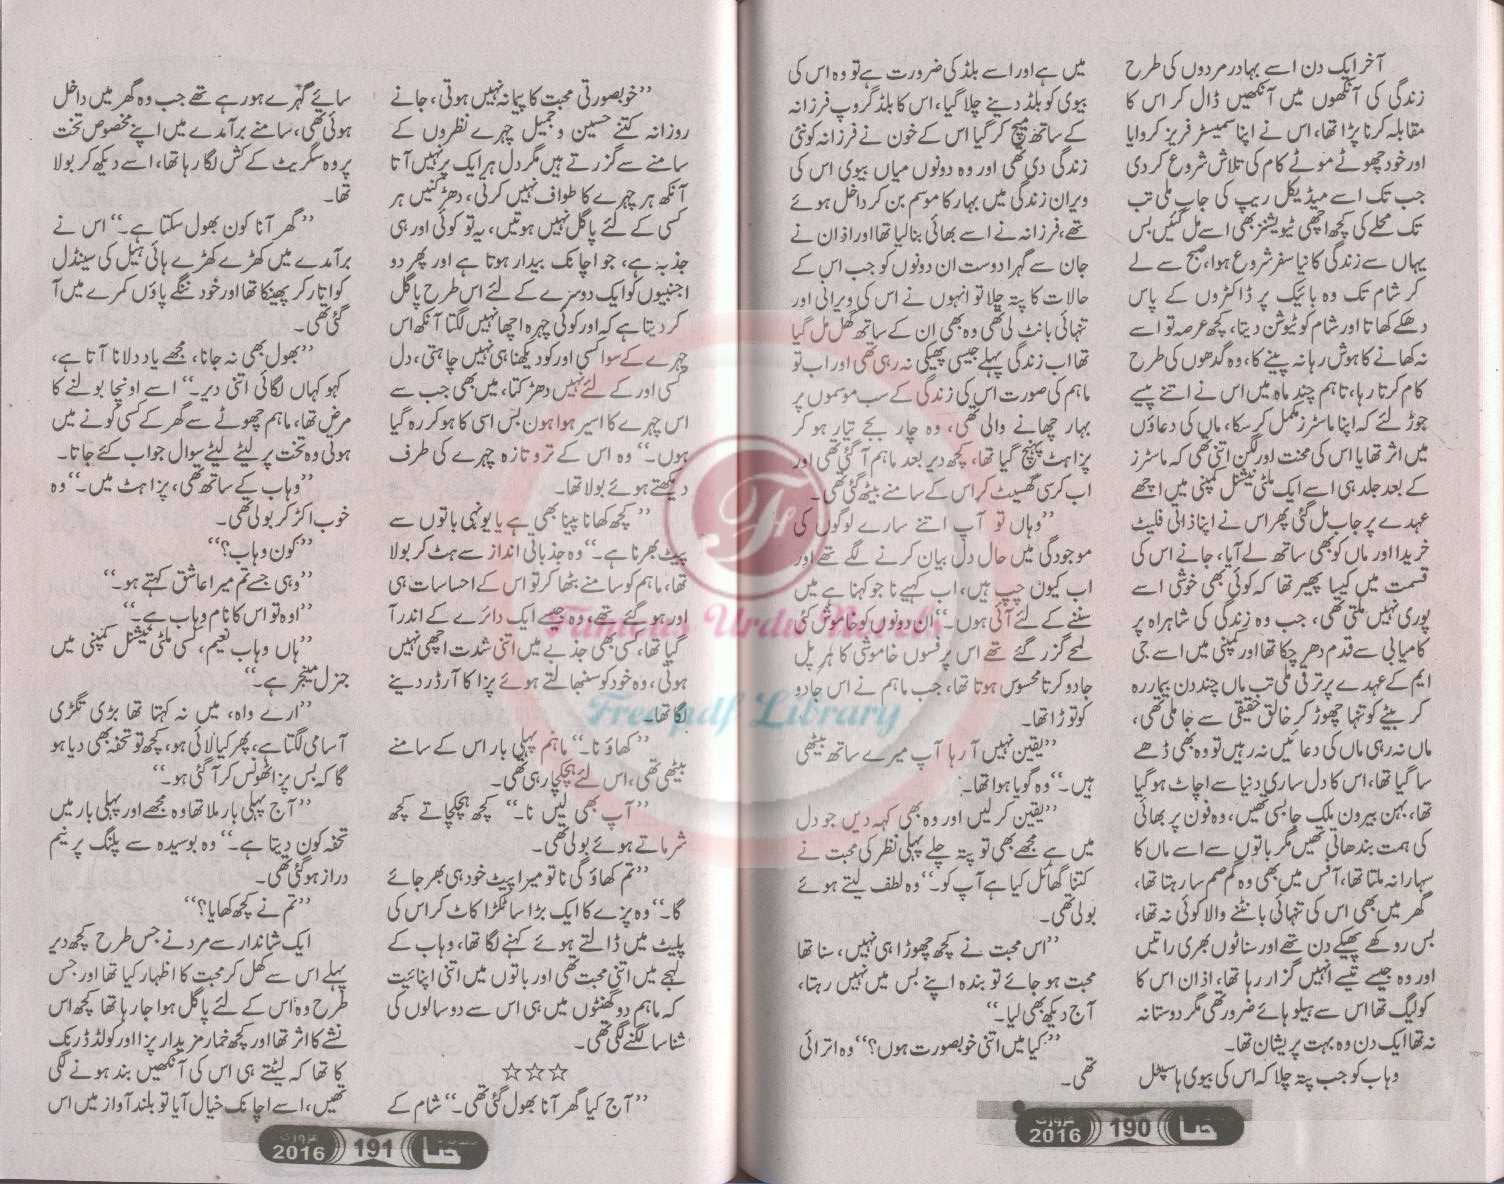 آخر ایک دن اسے بہادر مردوں کی طرح
زندگی کی آنکھوں میں آنکھیں ڈال کر اس کا
مقابلہ کرنا پڑا تھا، اس نے اپنا سمیسٹر فریز کروایا
اور خود چھوٹے موٹے کام کی تلاش شروع کر دی
جب تک اسے میڈیکل ریپ کی جاب ملی تب
تک محلے کی کچھ اچھی ٹیوشنز بھی اسے مل گئیں بس
یہاں سے زندگی کا نیا سفر شروع ہوا، صبح سے لے
کر شام تک وہ بائیک پر ڈاکٹروں کے پاس
دھکے کھاتا اور شام کو ٹیوشن دیتا، کچھ عرصہ تو اسے
نہ کھانے کا ہوش رہا نہ پینے کا، وہ گدھوں کی طرح
کام کرتا رہا، تاہم چند ماہ میں اس نے اتنے پیسے
جوڑ لئے کہ اپنا ماسٹرز مکمل کر سکا، ماں کی دعاؤں
میں اثر تھا یا اس کی محنت اور لگن اتنی تھی کہ ماسٹرز
کے بعد جلد ہی اسے ایک ملٹی نیشنل کمپنی میں اچھے
عہدے پر جاب مل گئی پھر اس نے اپنا ذاتی فلیٹ
خریدا اور ماں کو بھی ساتھ لے آیا، جانے اس کی
قسمت میں کیسا پھیر تھا کہ کوئی بھی خوشی اسے
پوری نہیں ملتی تھی، جب وہ زندگی کی شاہراہ پر
کامیابی سے قدم دھر چکا تھا اور کمپنی میں اسے جی
ایم کے عہدے پر ترقی ملی تب ماں چند دن بیمار رہ
کر بیٹے کو تنہا چھوڑ کر خالق حقیقی سے جا ملی تھی،
ماں نہ رہی ماں کی دعائیں نہ رہیں تو وہ بھی ڈھے
سا گیا تھا، اس کا دل ساری دنیا سے اچاٹ ہو گیا
تھا، بہن بیرون ملک جا بسی تھیں، وہ فون پر بھائی
کی ہمت بندھاتی تھیں مگر باتوں سے اسے ماں کا
سہارا نہ ملتا تھا، آفس میں بھی وہ گم صم سا رہتا تھا،
گھر میں بھی اس کی تنہائی بانٹنے والا کوئی نہ تھا،
بس روکھے پھیکے دن تھے اور سناٹوں بھری راتیں
اور وہ جیسے تیسے انہیں گزار رہا تھا، اذان اس کا
کولیگ تھا اس سے ہیلو ہائے ضرور تھی مگر دوستانہ
نہ تھا ایک دن وہ بہت پریشان تھا۔
وہاب کو جب پتہ چلا کہ اس کی بیوی ہاسپٹل
میں ہے اور اسے بلڈ کی ضرورت ہے تو وہ اس کی
بیوی کو بلڈ دینے چلا گیا، اس کا بلڈ گروپ فرزانہ
کے ساتھ میچ کر گیا اس کے خون نے فرزانہ کو نئی
زندگی دی تھی اور وہ دونوں میاں بیوی اس کی
ویران زندگی میں بہار کا موسم بن کر داخل ہوئے
تھے، فرزانہ نے اسے بھائی بنا لیا تھا اور اذان نے
جان سے گہرا دوست ان دونوں کو جب اس کے
حالات کا پتہ چلا تو انہوں نے اس کی ویرانی اور
تنہائی بانٹ لی تھی وہ بھی ان کے ساتھ گھل مل گیا
تھا اب زندگی پہلے جیسی پھیکی نہ رہی تھی اور اب تو
ماہم کی صورت اس کی زندگی کے سب موسموں پر
بہار چھانے والی تھی، وہ چار بجے تیار ہو کر
پزاہٹ پہنچ گیا تھا، کچھ دیر بعد ماہم آ گئی تھی اور
اب کرسی گھسیٹ کر اس کے سامنے بیٹھ گئی تھی۔
’’وہاں تو آپ اتنے سارے لوگوں کی
موجودگی میں حال دل بیان کرنے لگے تھے اور
اب کیوں چپ ہیں، اب کہیے نا جو کہنا ہے میں
سننے کے لئے آئی ہوں۔‘‘ ان دونوں کو خاموش کئی
لمحے گزر گئے تھے اس پرفسوں خاموشی کا ہر پل
جادو کرتا محسوس ہوتا تھا، جب ماہم نے اس جادو
کو توڑا تھا۔
’’یقین نہیں آ رہا آپ میرے ساتھ بیٹھی
ہیں۔‘‘ وہ گویا ہوا تھا۔
’’یقین کر لیں اور وہ بھی کہہ دیں جو دل
میں ہے مجھے بھی تو پتہ چلے پہلی نظر کی محبت نے
کتنا گھائل کیا ہے آپ کو۔‘‘ وہ لطف لیتے ہوئے
بولی تھی۔
’’اس محبت نے کچھ چھوڑا ہی نہیں، سنا تھا
محبت ہو جائے تو بندہ اپنے بس میں نہیں رہتا،
آج دیکھ بھی لیا۔‘‘
’’کیا میں اتنی خوبصورت ہوں؟‘‘ وہ اترائی
تھی۔
حنا 190 فروری 2016
’’خوبصورتی محبت کا پیمانہ نہیں ہوتی، جانے
روزانہ کتنے حسین و جمیل چہرے نظروں کے
سامنے سے گزرتے ہیں مگر دل ہر ایک پر نہیں آتا
آنکھ ہر چہرے کا طواف نہیں کرتی، دھڑکنیں ہر
کسی کے لئے پاگل نہیں ہوتیں، یہ تو کوئی اور ہی
جذبہ ہے، جو اچانک بیدار ہوتا ہے اور پھر دو
اجنبیوں کو ایک دوسرے کے لئے اس طرح پاگل
کر دیتا ہے کہ اور کوئی چہرہ اچھا نہیں لگتا آنکھ اس
چہرے کے سوا کسی اور کو دیکھنا ہی نہیں چاہتی، دل
کسی اور کے لئے نہیں دھڑکتا، میں بھی جب سے
اس چہرے کا اسیر ہوا ہوں بس اسی کا ہو کر رہ گیا
ہوں۔‘‘ وہ اس کے تروتازہ چہرے کی طرف
دیکھتے ہوئے بولا تھا۔
’’کچھ کھانا پینا بھی ہے یا یونہی باتوں سے
پیٹ بھرنا ہے۔‘‘ وہ جذباتی انداز سے ہٹ کر بولا
تھا، ماہم کو سامنے بٹھا کر تو اس کے احساسات ہی
اور ہو گئے تھے، وہ جیسے ایک دائرے کے اندر آ
گیا تھا، کسی بھی جذبے میں اتنی شدت اچھی نہیں
ہوتی، وہ خود کو سنبھالتے ہوئے پزا کا آرڈر دینے
لگا تھا۔
’’کھاؤ نا۔‘‘ ماہم پہلی بار اس کے سامنے
بیٹھی تھی، اس لئے ہچکچا رہی تھی۔
’’آپ بھی لیں نا۔‘‘ کچھ ہچکچاتے کچھ
شرماتے ہوئے بولی تھی۔
’’تم کھاؤ گی نا تو میرا پیٹ خود ہی بھر جائے
گا۔‘‘ وہ پزے کا ایک بڑا سا ٹکڑا کاٹ کر اس کی
پلیٹ میں ڈالتے ہوئے کہنے لگا تھا، وہاب کے
لہجے میں اتنی محبت تھی اور باتوں میں اتنی اپنائیت
کہ ماہم دو گھنٹوں میں ہی اس سے دو سالوں کی
شناسا لگنے لگی تھی۔
☆☆☆
’’آج کیا گھر آنا بھول گئی تھی۔‘‘ شام کے
سائے گہرے ہو رہے تھے جب وہ گھر میں داخل
ہوئی تھی، سامنے برآمدے میں اپنے مخصوص تخت
پر وہ سگریٹ کے کش لگا رہا تھا، اسے دیکھ کر بولا
تھا۔
’’گھر آنا کون بھول سکتا ہے۔‘‘ اس نے
برآمدے میں کھڑے کھڑے ہائی ہیل کی سینڈل
کو اتار کر پھینکا تھا اور خود ننگے پاؤں کمرے میں آ
گئی تھی۔
’’بھول بھی نہ جانا، مجھے یاد دلانا آتا ہے،
کہو کہاں لگائی اتنی دیر۔‘‘ اسے اونچا بولنے کا
مرض تھا، ماہم چھوٹے سے گھر کے کسی کونے میں
ہوتی وہ تخت پر لیٹے لیٹے سوال جواب کئے جاتا۔
’’وہاب کے ساتھ تھی، پزاہٹ میں۔‘‘ وہ
خوب اکڑ کر بولی تھی۔
’’کون وہاب؟‘‘
’’وہی جسے تم میرا عاشق کہتے ہو۔‘‘
’’اوہ تو اس کا نام وہاب ہے۔‘‘
’’ہاں وہاب نعیم، کسی ملٹی نیشنل کمپنی میں
جنرل مینجر ہے۔‘‘
’’ارے واہ، میں نہ کہتا تھا بڑی تگڑی
آسامی لگتا ہے، پھر کیا لائی ہو، کچھ تو تحفہ بھی دیا ہو
گا کہ بس پزا ٹھونس کر آ گئی ہو۔‘‘
’’آج پہلی بار ملا تھا وہ مجھے اور پہلی بار میں
تحفہ کون دیتا ہے۔‘‘ وہ بوسیدہ سے پلنگ پر نیم
دراز ہو گئی تھی۔
’’تم نے کچھ کھایا؟‘‘
ایک شاندار سے مرد نے جس طرح کچھ دیر
پہلے اس سے کھل کر محبت کا اظہار کیا تھا اور جس
طرح وہ اس کے لئے پاگل ہوا جا رہا تھا کچھ اس
نشے کا اثر تھا اور کچھ خمار مزیدار پزا اور کولڈ ڈرنک
کا تھا کہ لیٹتے ہی اس کی آنکھیں بند ہونے لگی
تھیں، اسے اچانک خیال آیا تو بلند آواز میں اس
حنا 191 فروری 2016
Famous Urdu Novels
Free pdf Library